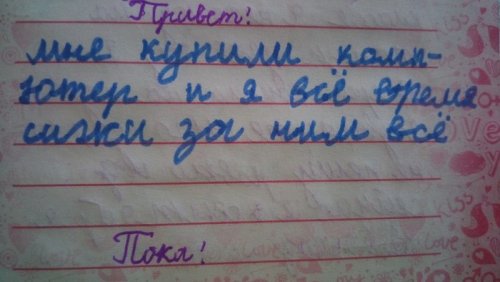 Привет!
мне купили комп-
ютер и я всё время
сижу за ним всё
Пока!